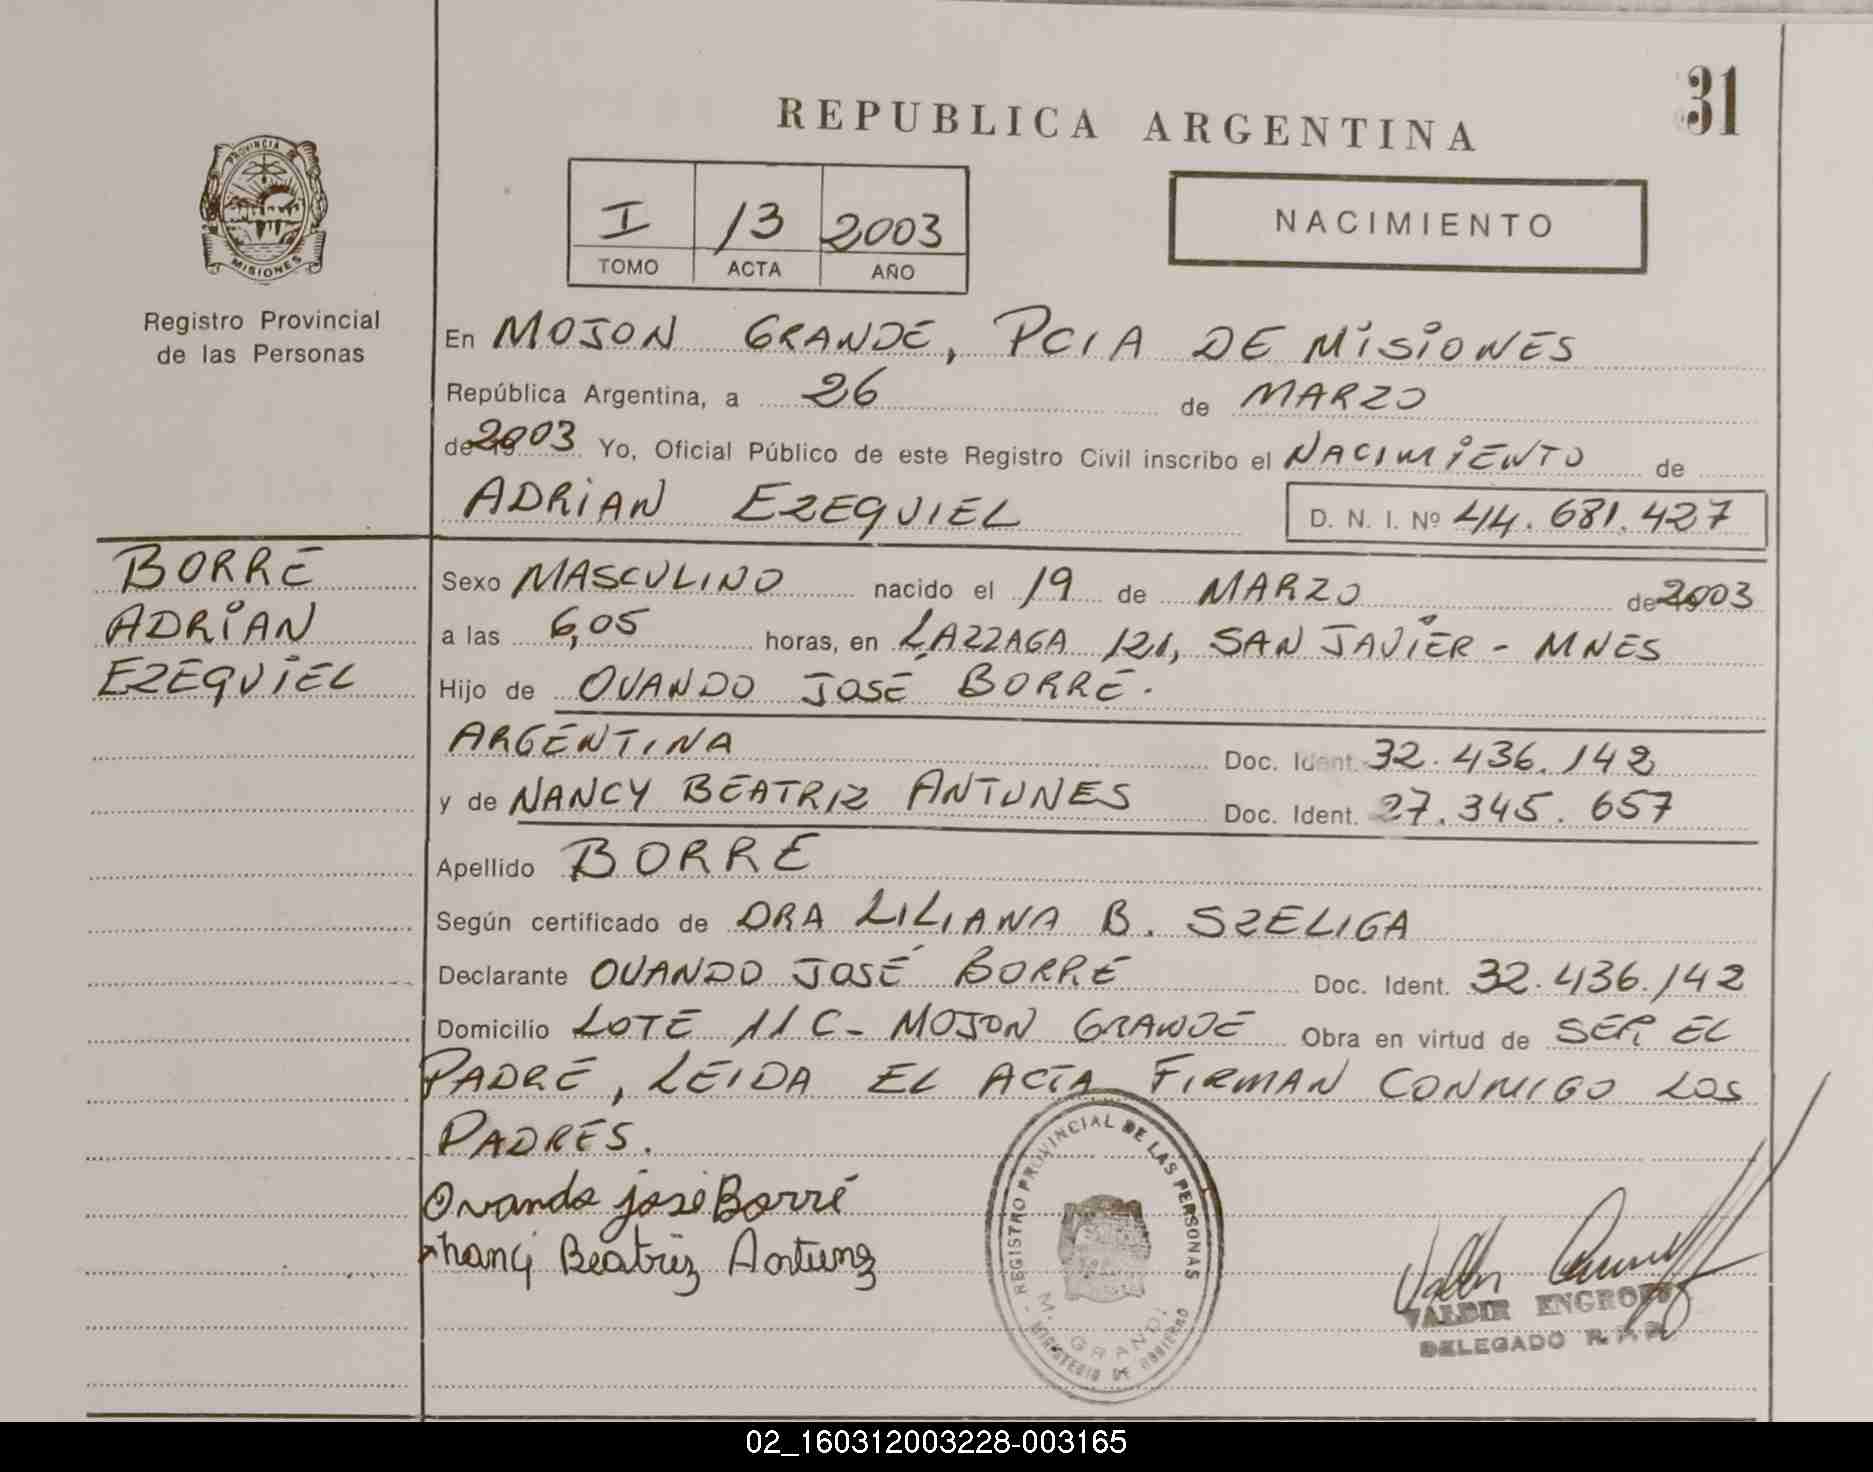 31
REPUBLICA ARGENTINA
PROVINCIA DE
MISIONES
Registro Provincial
de las Personas
I 13 2003
TOMO ACTA AÑO
NACIMIENTO
En MOJON GRANDE, PCIA DE MISIONES
República Argentina, a 26 de MARZO
de 2003 Yo, Oficial Público de este Registro Civil inscribo el NACIMIENTO de
ADRIAN EZEQUIEL D. N. I. Nº 44.681.427
BORRE
ADRIAN
EZEQUIEL
Sexo MASCULINO nacido el 19 de MARZO de 2003
a las 6,05 horas, en LAZZAGA 121, SAN JAVIER - MNES
Hijo de OVANDO JOSÉ BORRÉ.
ARGENTINA Doc. Ident. 32.436.142
y de NANCY BEATRIZ ANTUNES Doc. Ident. 27.345.657
Apellido BORRE
Según certificado de DRA LILIANA B. SZELIGA
Declarante OVANDO JOSÉ BORRE Doc. Ident. 32.436.142
Domicilio LOTE 11 C- MOJON GRANDE Obra en virtud de SER EL
PADRE, LEIDA EL ACTA FIRMAN CONMIGO LOS
PADRES.
Ovando josé Borré
Beatriz
REGISTRO PROVINCIAL DE LAS PERSONAS
M. GRANDE
MINISTERIO DE GOBIERNO
VALDIR ENGROFF
DELEGADO R.P.P.
02_160312003228-003165